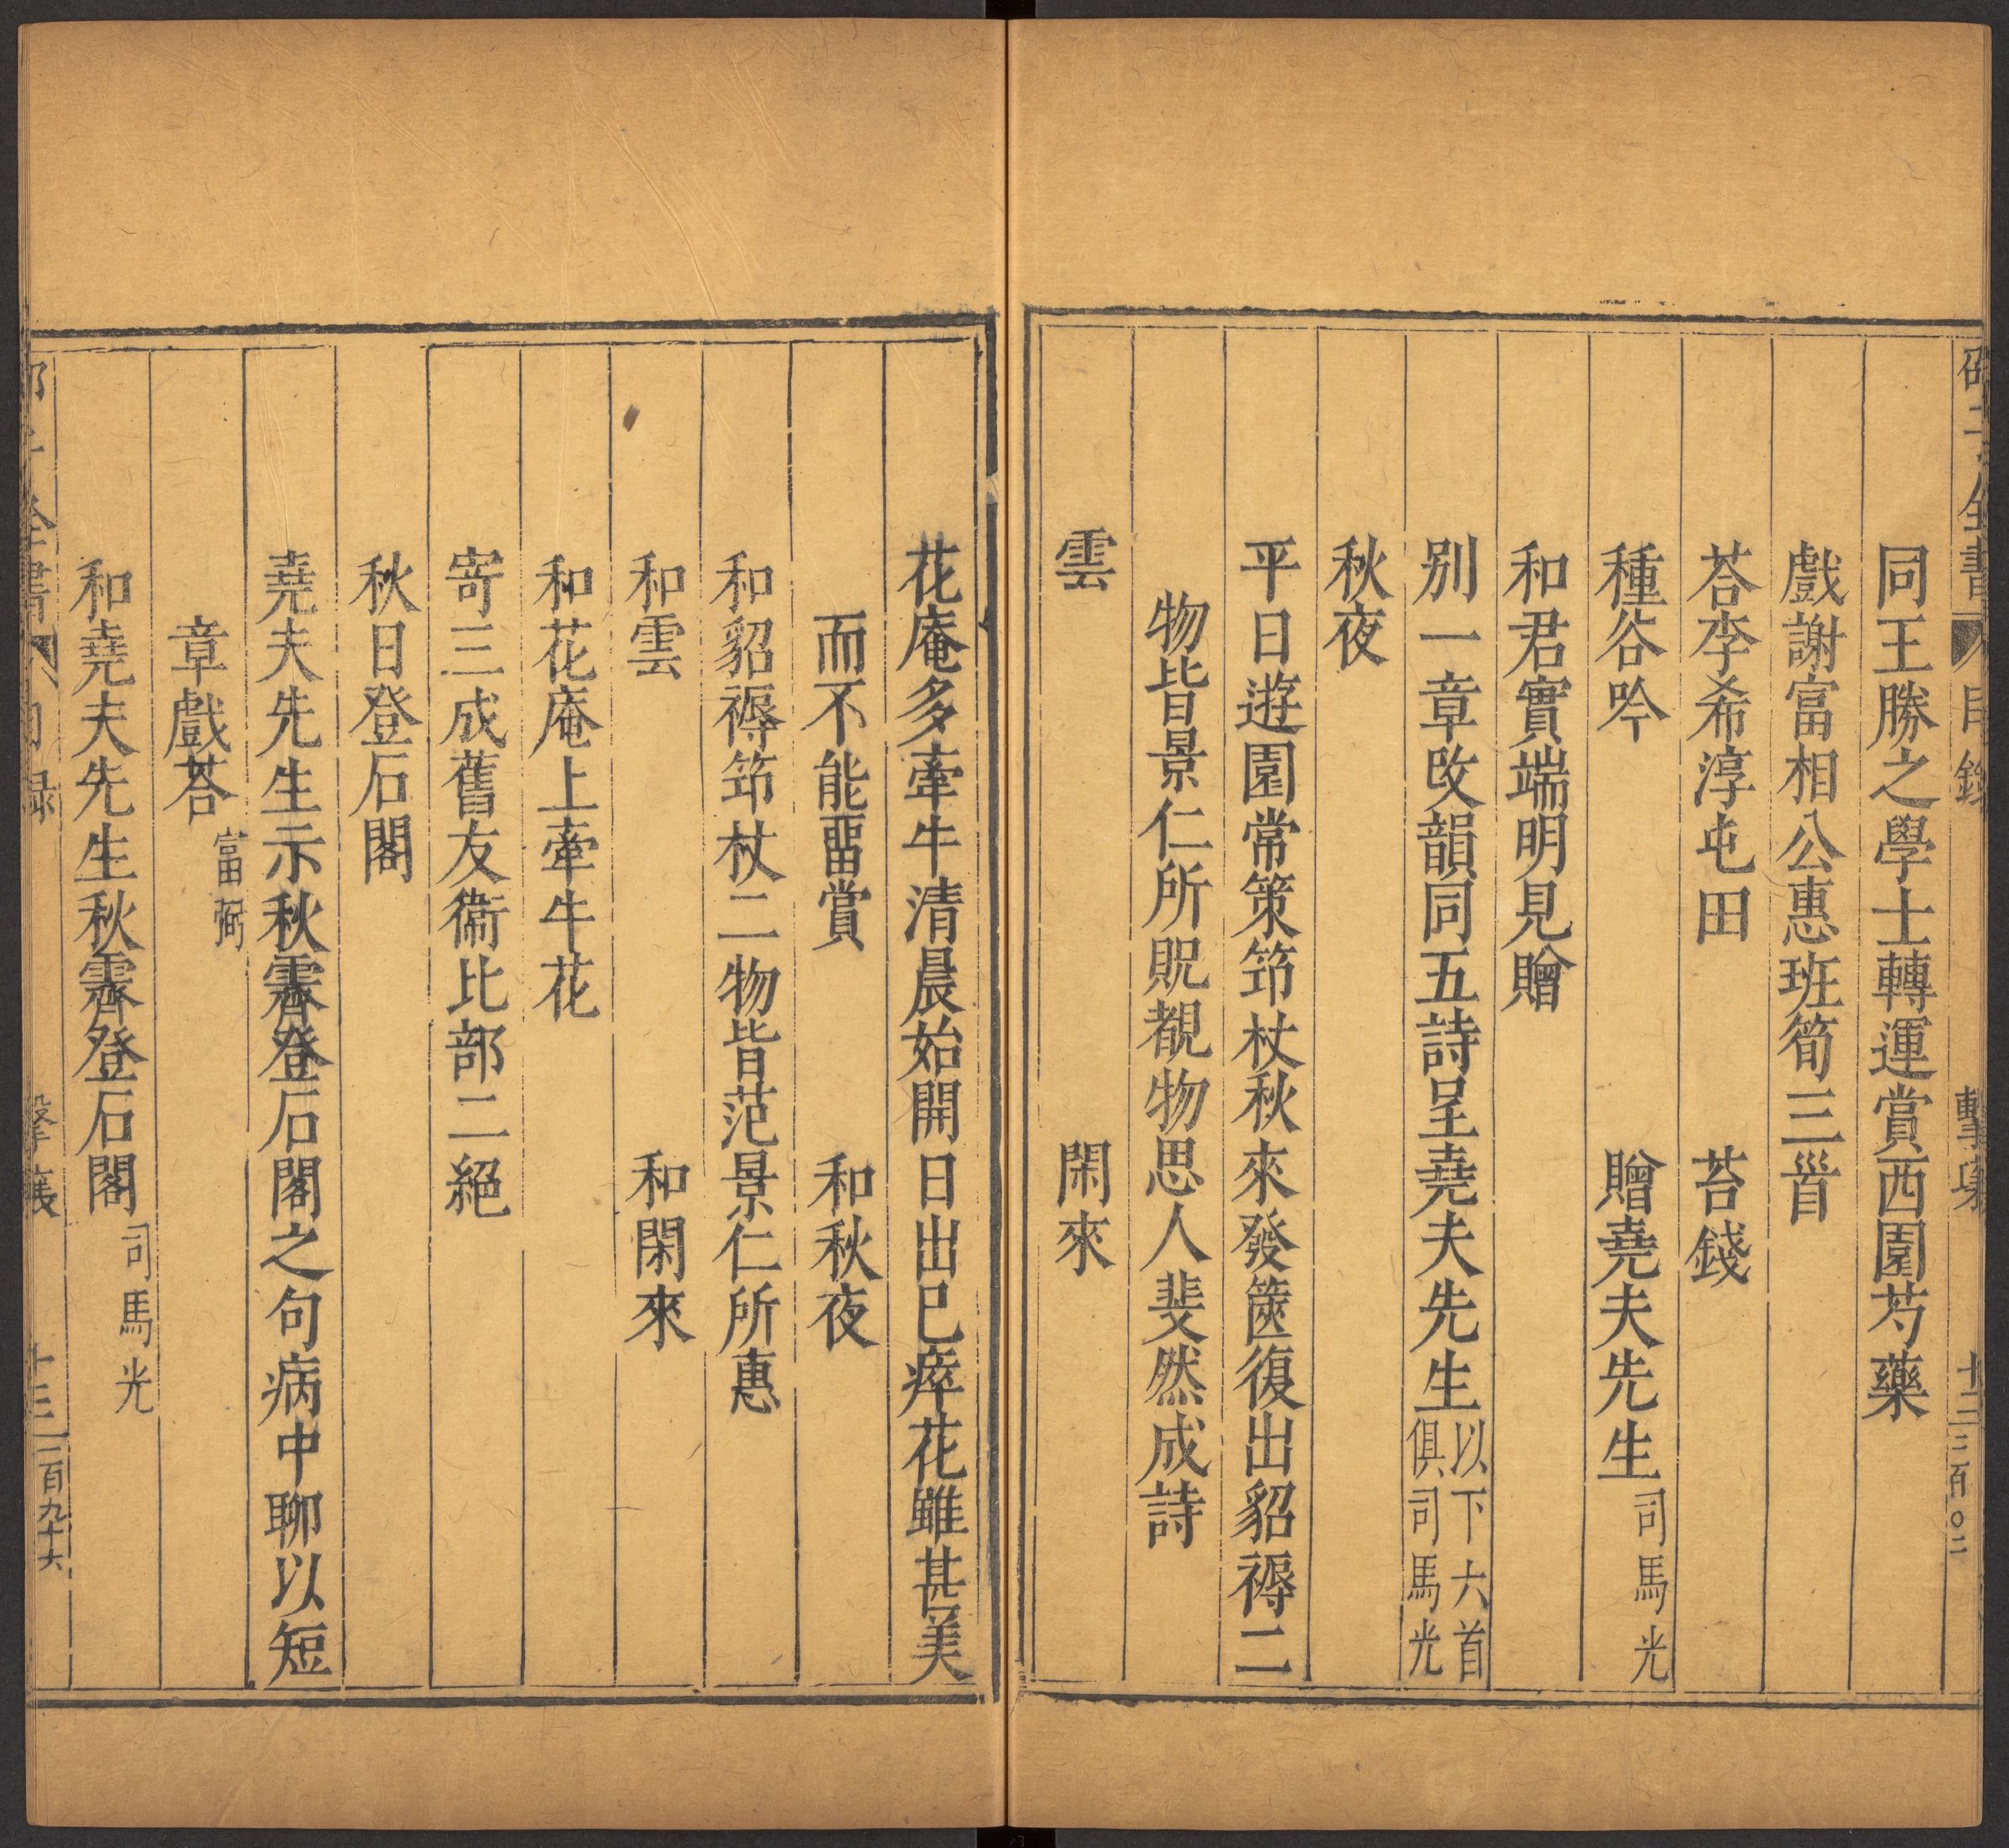 同王勝之學士轉運賞西園芍藥
戲謝富相公惠班筍三首
荅李希淳屯田　苔錢
種谷吟　贈堯夫先生司馬光
和君實端明見贈
別一章改韻同五詩呈堯夫先生以下六首俱司馬光
秋夜
平日遊園常策筇杖秋來發篋復出貂褥二
物皆景仁所貺覩物思人斐然成詩
雲　閑來
花庵多牽牛清晨始開日出已瘁花雖甚美
而不能畱賞　和秋夜
和貂褥筇杖二物皆范景仁所惠
和雲　和閑來
和花庵上牽牛花
寄三成舊友衞比部二絕
秋日登石閣
堯夫先生示秋霽登石閣之句病中聊以短
章戲荅富弼
和堯夫先生秋霽登石閣司馬光
全書　目錄　擊壤　十三　二百九十六